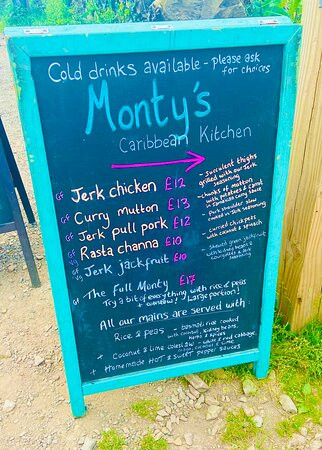 Cold drinks available - please ask
for choices
Monty's
Caribbean Kitchen
GF Jerk chicken £12
- Succulent thighs
grilled with our Jerk
seasoning
GF Curry mutton £13
- chunks of mutton
with potatoes & carrot
in Jamaican curry sauce
GF Jerk pull pork £12
- Pork shoulder slow
cooked in Jerk seasoning
GF Rasta channa £10
- Curried chickpeas
with coconut & spinach
Jerk jackfruit £10
green jackfruit
seasoning
GF The Full Monty £17
Try a bit of everything with rice & peas
+ coleslaw! Large portion!
All our mains are served with:
Rice & peas - basmati rice cooked
with coconut, kidney beans,
herbs & spices
+ Coconut & lime coleslaw - white & red cabbage,
coconut & lime
+ Homemade HOT & SWEET pepper sauces